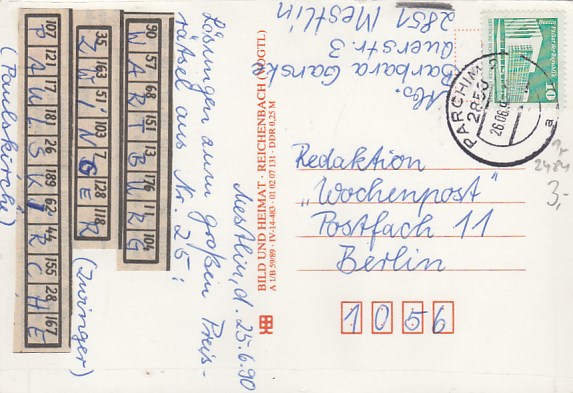 Abs.
Barbara Ganske
auerstr. 3
2851 Mestlin
Mestlin, d. 25.6.90
Lösungen zum großen Preis-
rätsel aus Nr. 25:
90 57 68 151 13 176 11 104
W A R T B U R G
35 163 51 103 7 128 118
Z W I N G E R
(Zwinger)
107 121 17 181 26 189 62 44 155 28 167
P A U L S K I R C H E
(Paulskirche)
BILD UND HEIMAT · REICHENBACH (VOGTL)
A 1/B 59/89 · IV-14-483 · 01 02 07 131 · DDR 0,25 M
10
PARCHIM
2850
26.06.
a
Redaktion
„Wochenpost"
Postfach 11
Berlin
1056
2484
3,-